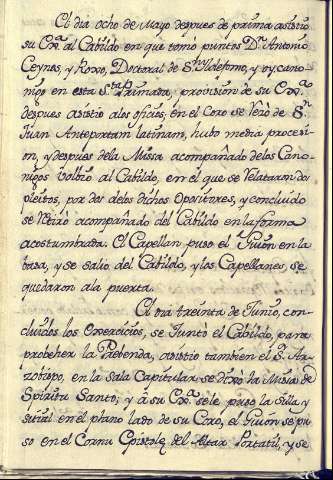 El dia ocho de Mayo despues de prima asistio
su Ex.ª al Cabildo en que tomò puntos D.n Antonio
Ceynos, y Roxo, Doctoral de S.n Yldefonso, y oy cano-
nigo en esta S.ta Primada, provision de su Ex.ª
despues asistio alos oficios, en el Coro se Verò de S.n
Juan Anteportam latinam, hubo media procesi-
on, y despues dela Missa acompañado delos Cano-
nigos volbiò al Cabildo, en el que se Velataron dos
pleitos, por dos delos dichos Opositores, y concluido
se Vetirò acompañado del Cabildo en la forma
acostumbrada. El Capellan puso el Guion en la
basa, y se salio del Cabildo, y los Capellanes, se
quedaron ala puerta.
El dia treinta de Junio, con-
cluidos los Exercicios, se Juntò el Cabildo, para
probeher la Prebenda, asistio tambien el S.r Ar-
zobispo, en la sala Capitular se dixò la Missa de
Spiritu Santo; y à su Ex.ª sele puso la Silla y
sitial en el plano lado de su Coro, el Guion se pu-
so en el Cornu Epistole del Altar Portatil, y se